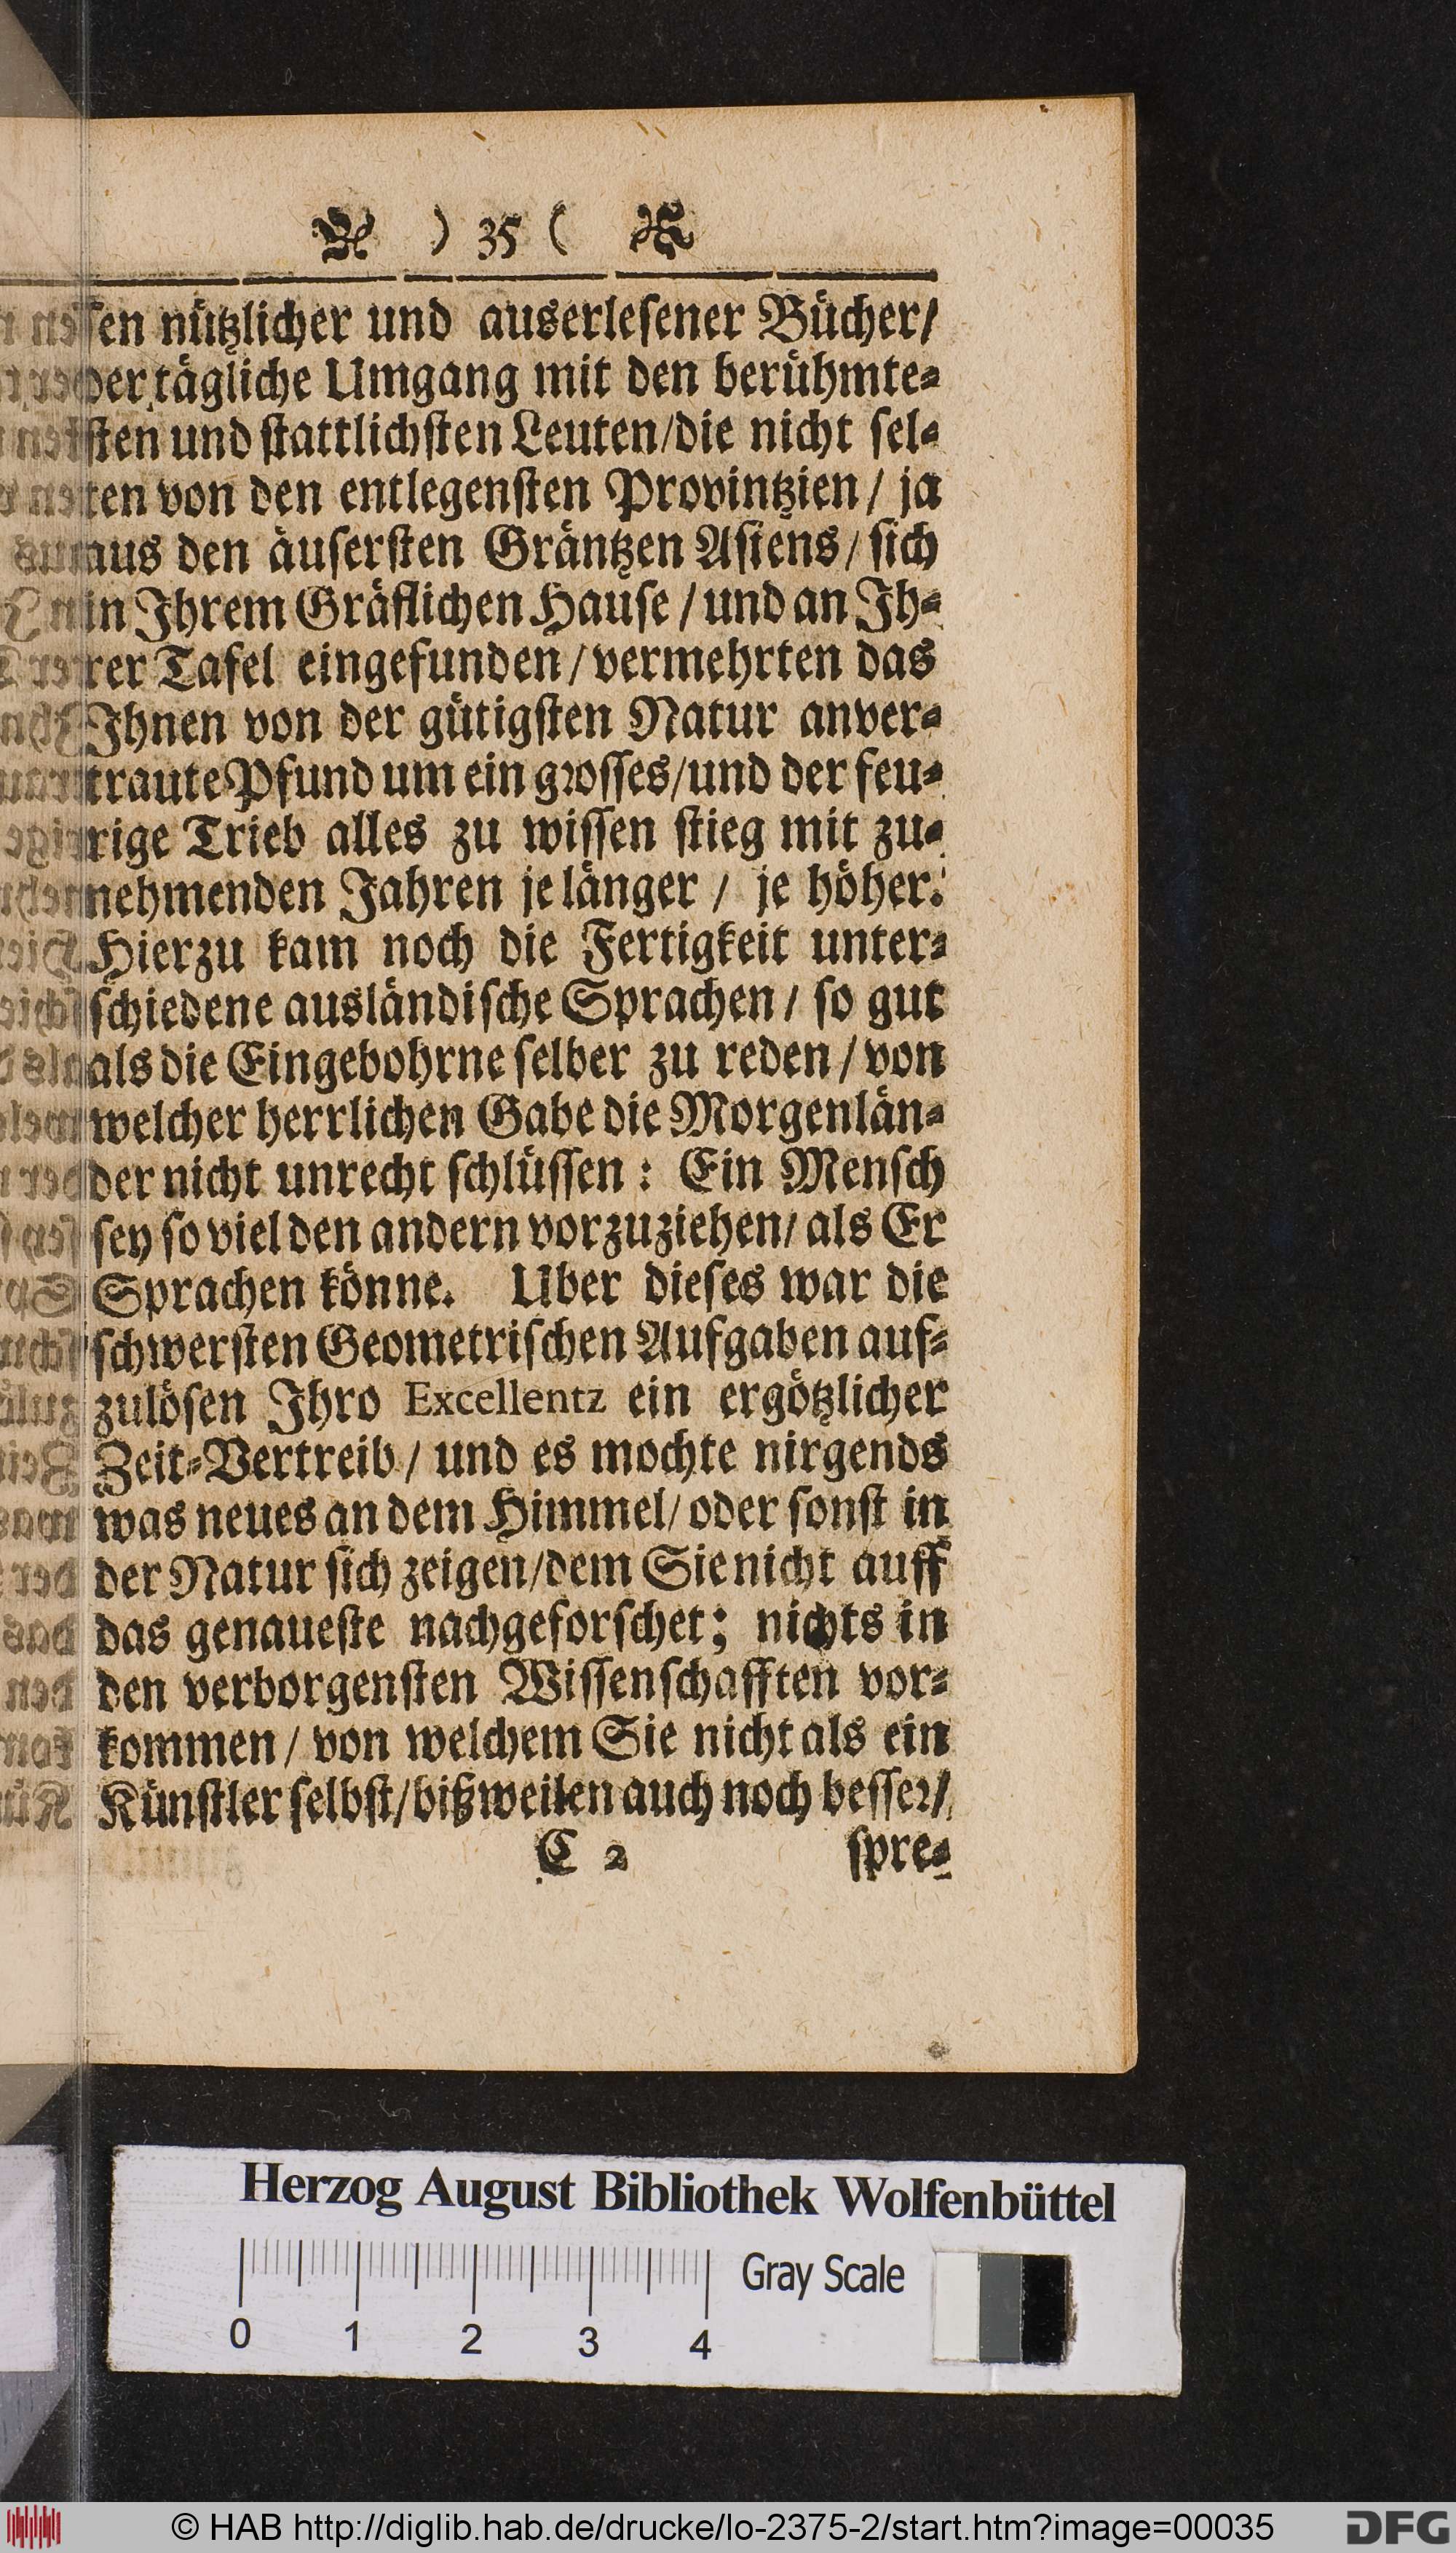 ) 35 (
sen nützlicher und auserlesener Bücher/
der tägliche Umgang mit den berühmte-
sten und stattlichsten Leuten/die nicht sel-
ten von den entlegensten Provintzien/ ja
aus den äusersten Gräntzen Asiens/ sich
in Ihrem Gräflichen Hause / und an Ih-
rer Tafel eingefunden/ vermehrten das
Ihnen von der gütigsten Natur anver-
traute Pfund um ein grosses/und der feu-
rige Trieb alles zu wissen stieg mit zu-
nehmenden Jahren je länger / je höher.
Hierzu kam noch die Fertigkeit unter-
schiedene ausländische Sprachen/ so gut
als die Eingebohrne selber zu reden/ von
welcher herrlichen Gabe die Morgenlän-
der nicht unrecht schlüssen: Ein Mensch
sey so viel den andern vorzuziehen/ als Er
Sprachen könne. Uber dieses war die
schwersten Geometrischen Aufgaben auf-
zulösen Ihro Excellentz ein ergötzlicher
Zeit-Vertreib/ und es mochte nirgends
was neues an dem Himmel/ oder sonst in
der Natur sich zeigen/dem Sie nicht auff
das genaueste nachgeforschet; nichts in
den verborgensten Wissenschafften vor-
kommen/ von welchem Sie nicht als ein
Künstler selbst/bißweilen auch noch besser/
C 2 spre-
Herzog August Bibliothek Wolfenbüttel
Gray Scale
0 1 2 3 4
© HAB http://diglib.hab.de/drucke/lo-2375-2/start.htm?image=00035 DFG